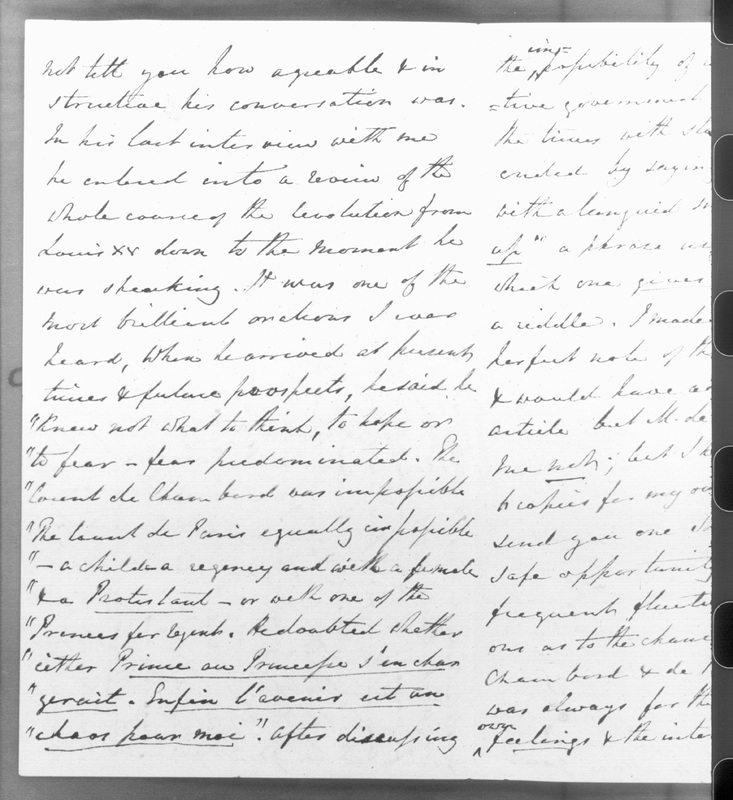 not tell you how agreeable & in
structive his conversation was.
In his last interview with me
he entered into a review of the
whole course of the Revolution from
Louis XV down to the moment he
was speaking. It was one of the
most brilliant orations I ever
heard, when he arrived at present
times & future prospects, he said he
"knew not what to think, to hope or
"to fear – fear predominated. The
"Count de Chambord was impossible
"The Count de Paris equally impossible
"– a child – a regency and with a female
"& a Protestant – or with one of the
"Princes for regent. He doubted whether
"either Prince ou Princesse s'en char
"gerait. Enfin l'avenir est un
"chaos pour moi". After discussing
the im-
possibility of
-tive government
the times with
ended by saying
with a languid
up" a phrase
which one gives
a riddle. I made
perfect note of the
& would have
article but M. de
me not; but I
6 copies for my
send you one
safe opportunity
frequent
ons as to the
Chambord & de
was always for the
own
feelings & the